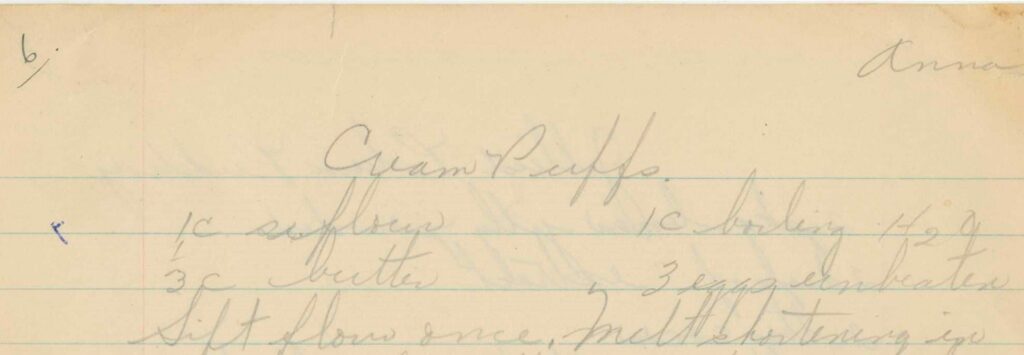 6. Anna
Cream Puffs.
1c flour 1c boiling H2O
1/3c butter 3 eggs unbeaten
Sift flour once, Melt shortening in